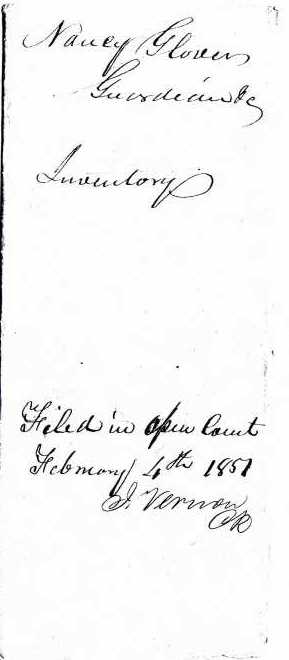 Nancy Glover
Guardian &c
Inventory
Filed in open Court
February 4th 1851
J. Vernon
Clk